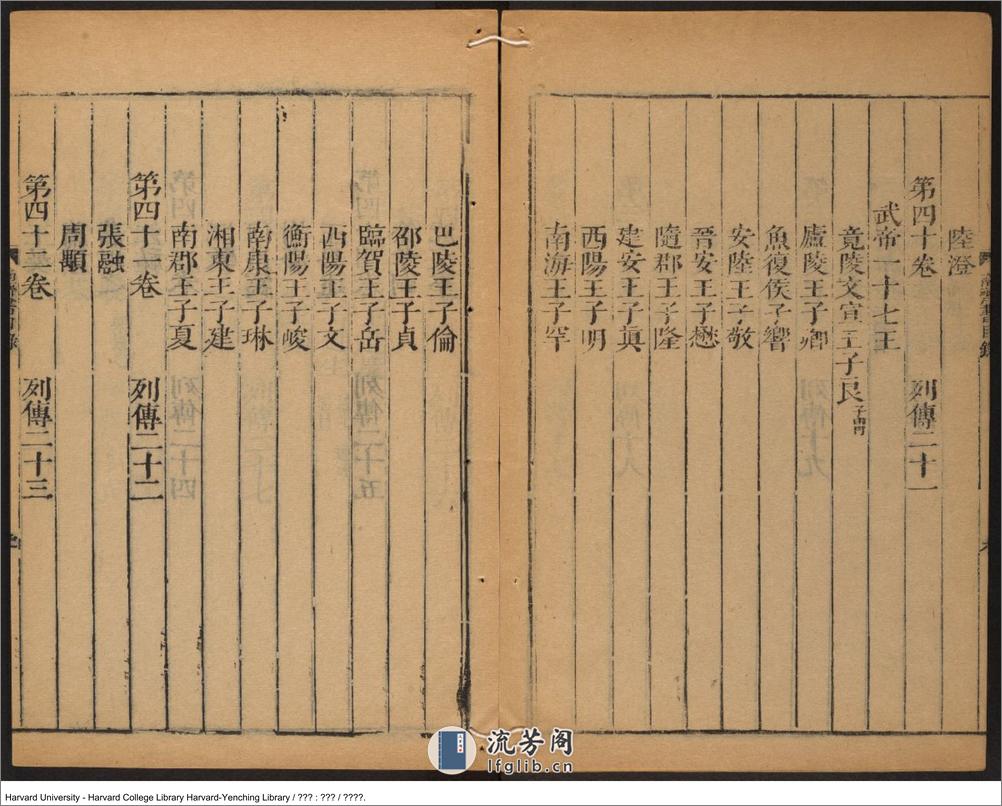 陸澄
第四十卷 列傳二十一
武帝一十七王
竟陵文宣王子良子昭胄
廬陵王子卿
魚復侯子響
安陸王子敬
晉安王子懋
隨郡王子隆
建安王子真
西陽王子明
南海王子罕
巴陵王子倫
邵陵王子貞
臨賀王子岳
西陽王子文
衡陽王子峻
南康王子琳
湘東王子建
南郡王子夏
第四十一卷 列傳二十二
張融
周顒
第四十二卷 列傳二十三
流芳阁
lfglib.cn
Harvard University - Harvard College Library Harvard-Yenching Library / ??? : ??? / ????.